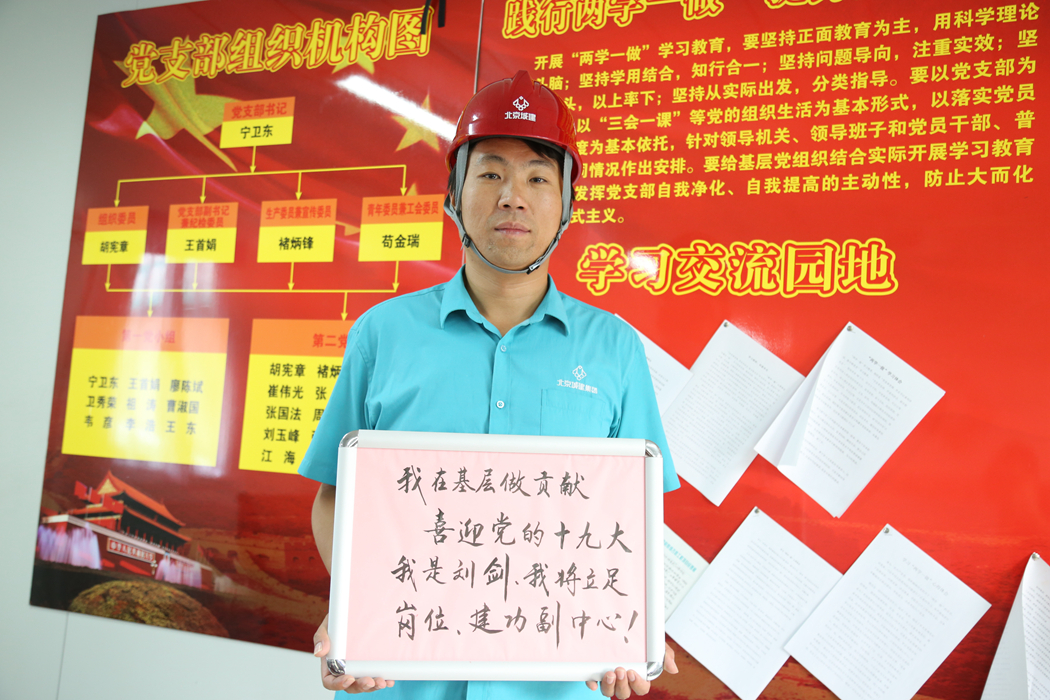 党支部组织机构图
党支部书记
宁卫东
组织委员
胡宪章
党支部副书记
兼纪检委员
王首娟
生产委员兼宣传委员
褚炳锋
青年委员兼工会委员
苟金瑞
第一党小组
宁卫东 王首娟 廖陈斌
卫秀荣 祖涛 曹淑国
韦彦 李 王东
第二党
胡宪章 褚炳
崔伟光 张
张国法 周
刘玉峰
江海
践行两学一做
开展“两学一做”学习教育，要坚持正面教育为主，用科学理论
头脑；坚持学用结合，知行合一；坚持问题导向，注重实效；坚
头，以上率下；坚持从实际出发，分类指导。要以党支部为
以“三会一课”等党的组织生活为基本形式，以落实党员
度为基本依托，针对领导机关、领导班子和党员干部、普
同情况作出安排。要给基层党组织结合实际开展学习教育
发挥党支部自我净化、自我提高的主动性，防止大而化
式主义。
学习交流园地
北京城建
北京城建集团
我在基层做贡献
喜迎党的十九大
我是刘剑、我将立足
岗位、建功副中心！